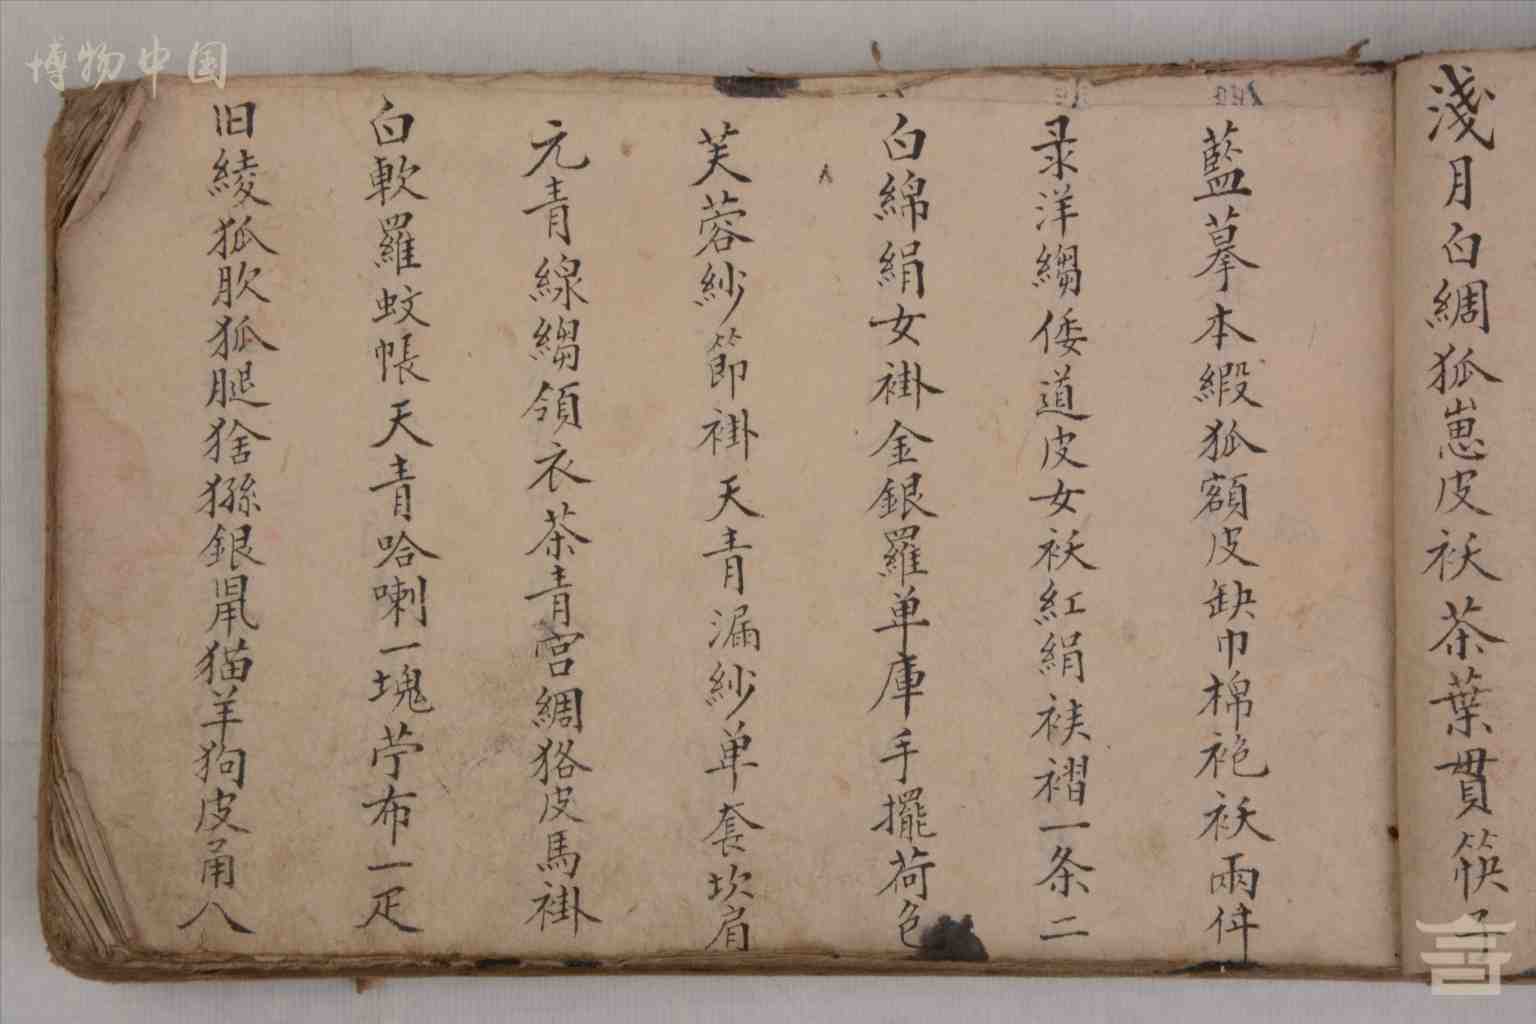 淺月白綢狐崽皮袄茶葉貫筷子
藍摹本緞狐額皮缺巾棉袍袄兩件
录洋縐倭道皮女袄紅絹袄褶一条二
白綿絹女褂金銀羅单庫手擺荷色
芙蓉紗箭褂天青漏紗单套坎肩
元青線縐領衣茶青宮綢狢皮馬褂
白軟羅蚊帳天青哈喇一塊苧布一疋
旧綾狐肷狐腿猞猻銀鼠猫羊狗皮甬八
博物中国